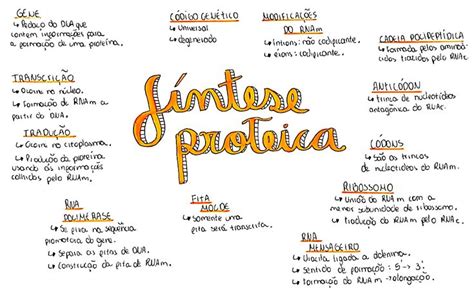 GENE
↳ Pedaço do DNA que
contém informações para
a formação de uma proteína.
TRANSCRIÇÃO
↳ Ocorre no núcleo.
↳ Formação de RNAm a
partir do DNA.
TRADUÇÃO
↳ Ocorre no citoplasma.
↳ Produção da proteína
usando as informações
colhidas pelo RNAm.
RNA
POLIMERASE
↳ Se fixa na sequência
promotora do gene.
↳ Separa as fitas de DNA.
↳ Construção da fita de RNAm.
CÓDIGO GENÉTICO
↳ Universal
↳ degenerado
Síntese
proteica
FITA
MOLDE
↳ Somente uma
fita será transcrita.
MODIFICAÇÕES
DO RNAm
↳ íntrons: não codificante.
↳ éxons: codificante.
CADEIA POLIPEPTÍDICA
↳ Formada pelos aminoáci-
dos trazidos pelo RNAt
ANTICÓDON
↳ Trinca de nucleotídeos
antagônica do RNAt.
CÓDONS
↳ São as trincas
de nucleotídeos do RNAm.
RIBOSSOMO
↳ União do RNAm com a
menor subunidade de ribossomo.
↳ tradução do RNAm pelo RNAt.
RNA
MENSAGEIRO
↳ Uracila ligada a adenina.
↳ Sentido de formação: 5' → 3'
↳ Formação de RNAm → alongação.